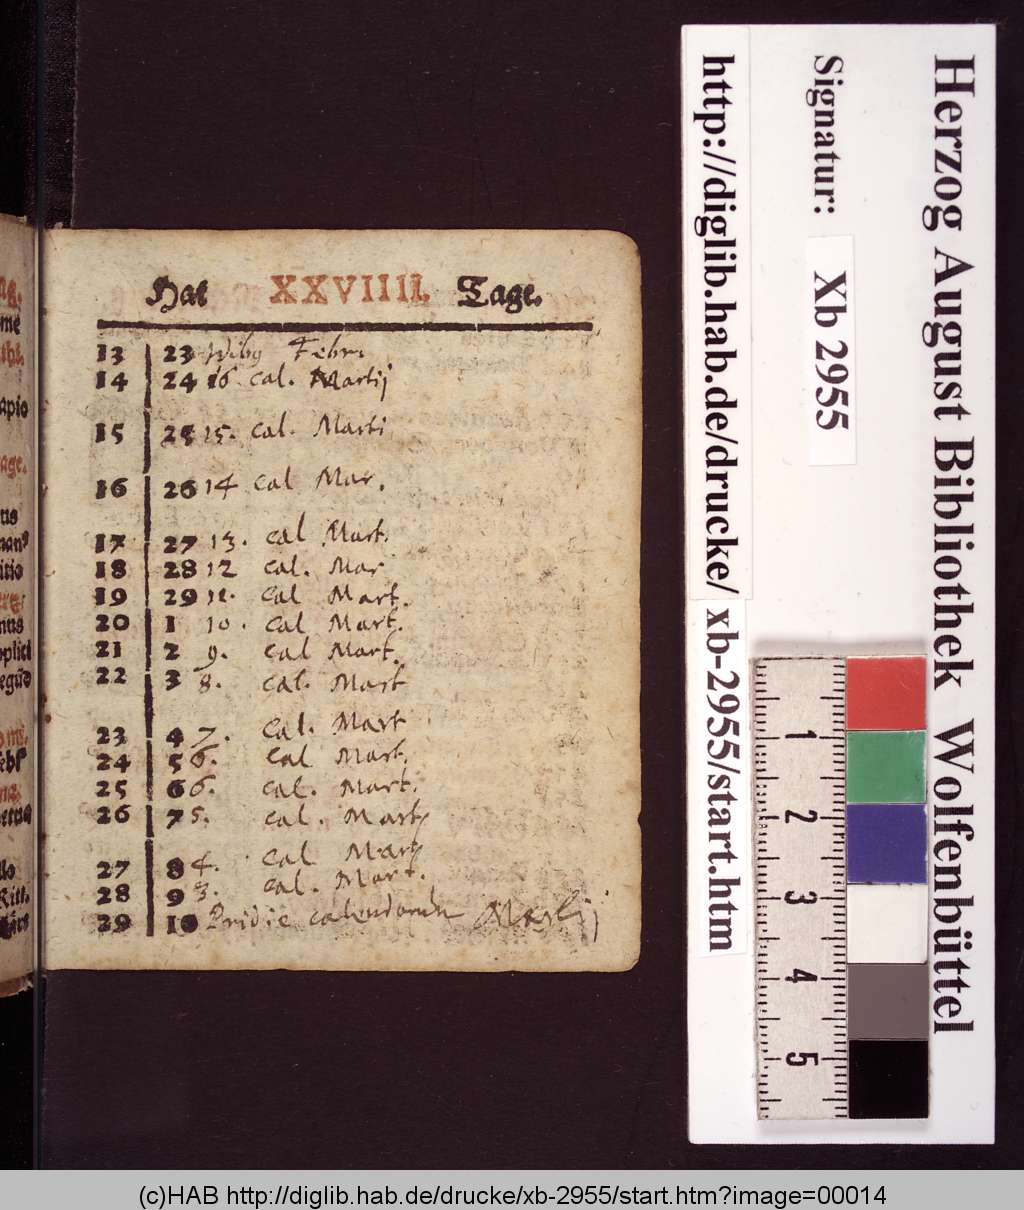 Hat XXVIIII. Tage.
13 23 Febr.
14 24 16 cal. Martij
15 25 15. cal. Marti
16 26 14 cal Mar.
17 27 13. cal Mart.
18 28 12 cal. Mar
19 29 11. cal Mart.
20 1 10. cal Mart.
21 2 9. cal Mart.
22 3 8. cal. Mart
23 4 7. cal. Mart
24 5 6. cal Mart.
25 6 6. cal. Mart.
26 7 5. cal. Mart
27 8 4. cal Mart
28 9 3. cal. Mart.
29 10 Pridie calendarum Martij
me
apio
age.
tus
itio
Herzog August Bibliothek Wolfenbüttel
Signatur: Xb 2955
http://diglib.hab.de/drucke/ xb-2955/start.htm
1
2
3
4
5
(c)HAB http://diglib.hab.de/drucke/xb-2955/start.htm?image=00014